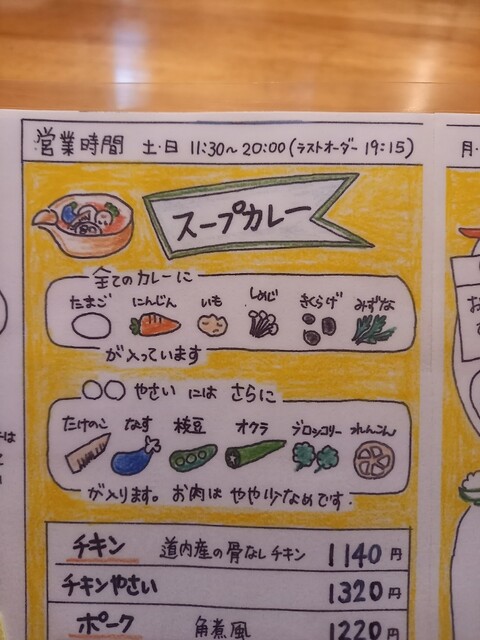 営業時間 土・日 11:30～20:00(ラストオーダー 19:15)
月・
スープカレー
全てのカレーに
たまご にんじん いも しめじ きくらげ みずな
が入っています
○○ やさい には さらに
たけのこ なす 枝豆 オクラ ブロッコリー れんこん
が入ります。 お肉は やや少なめです.
チキン 道内産の骨なしチキン 1140円
チキンやさい 1320円
ポーク 角煮風 1220円